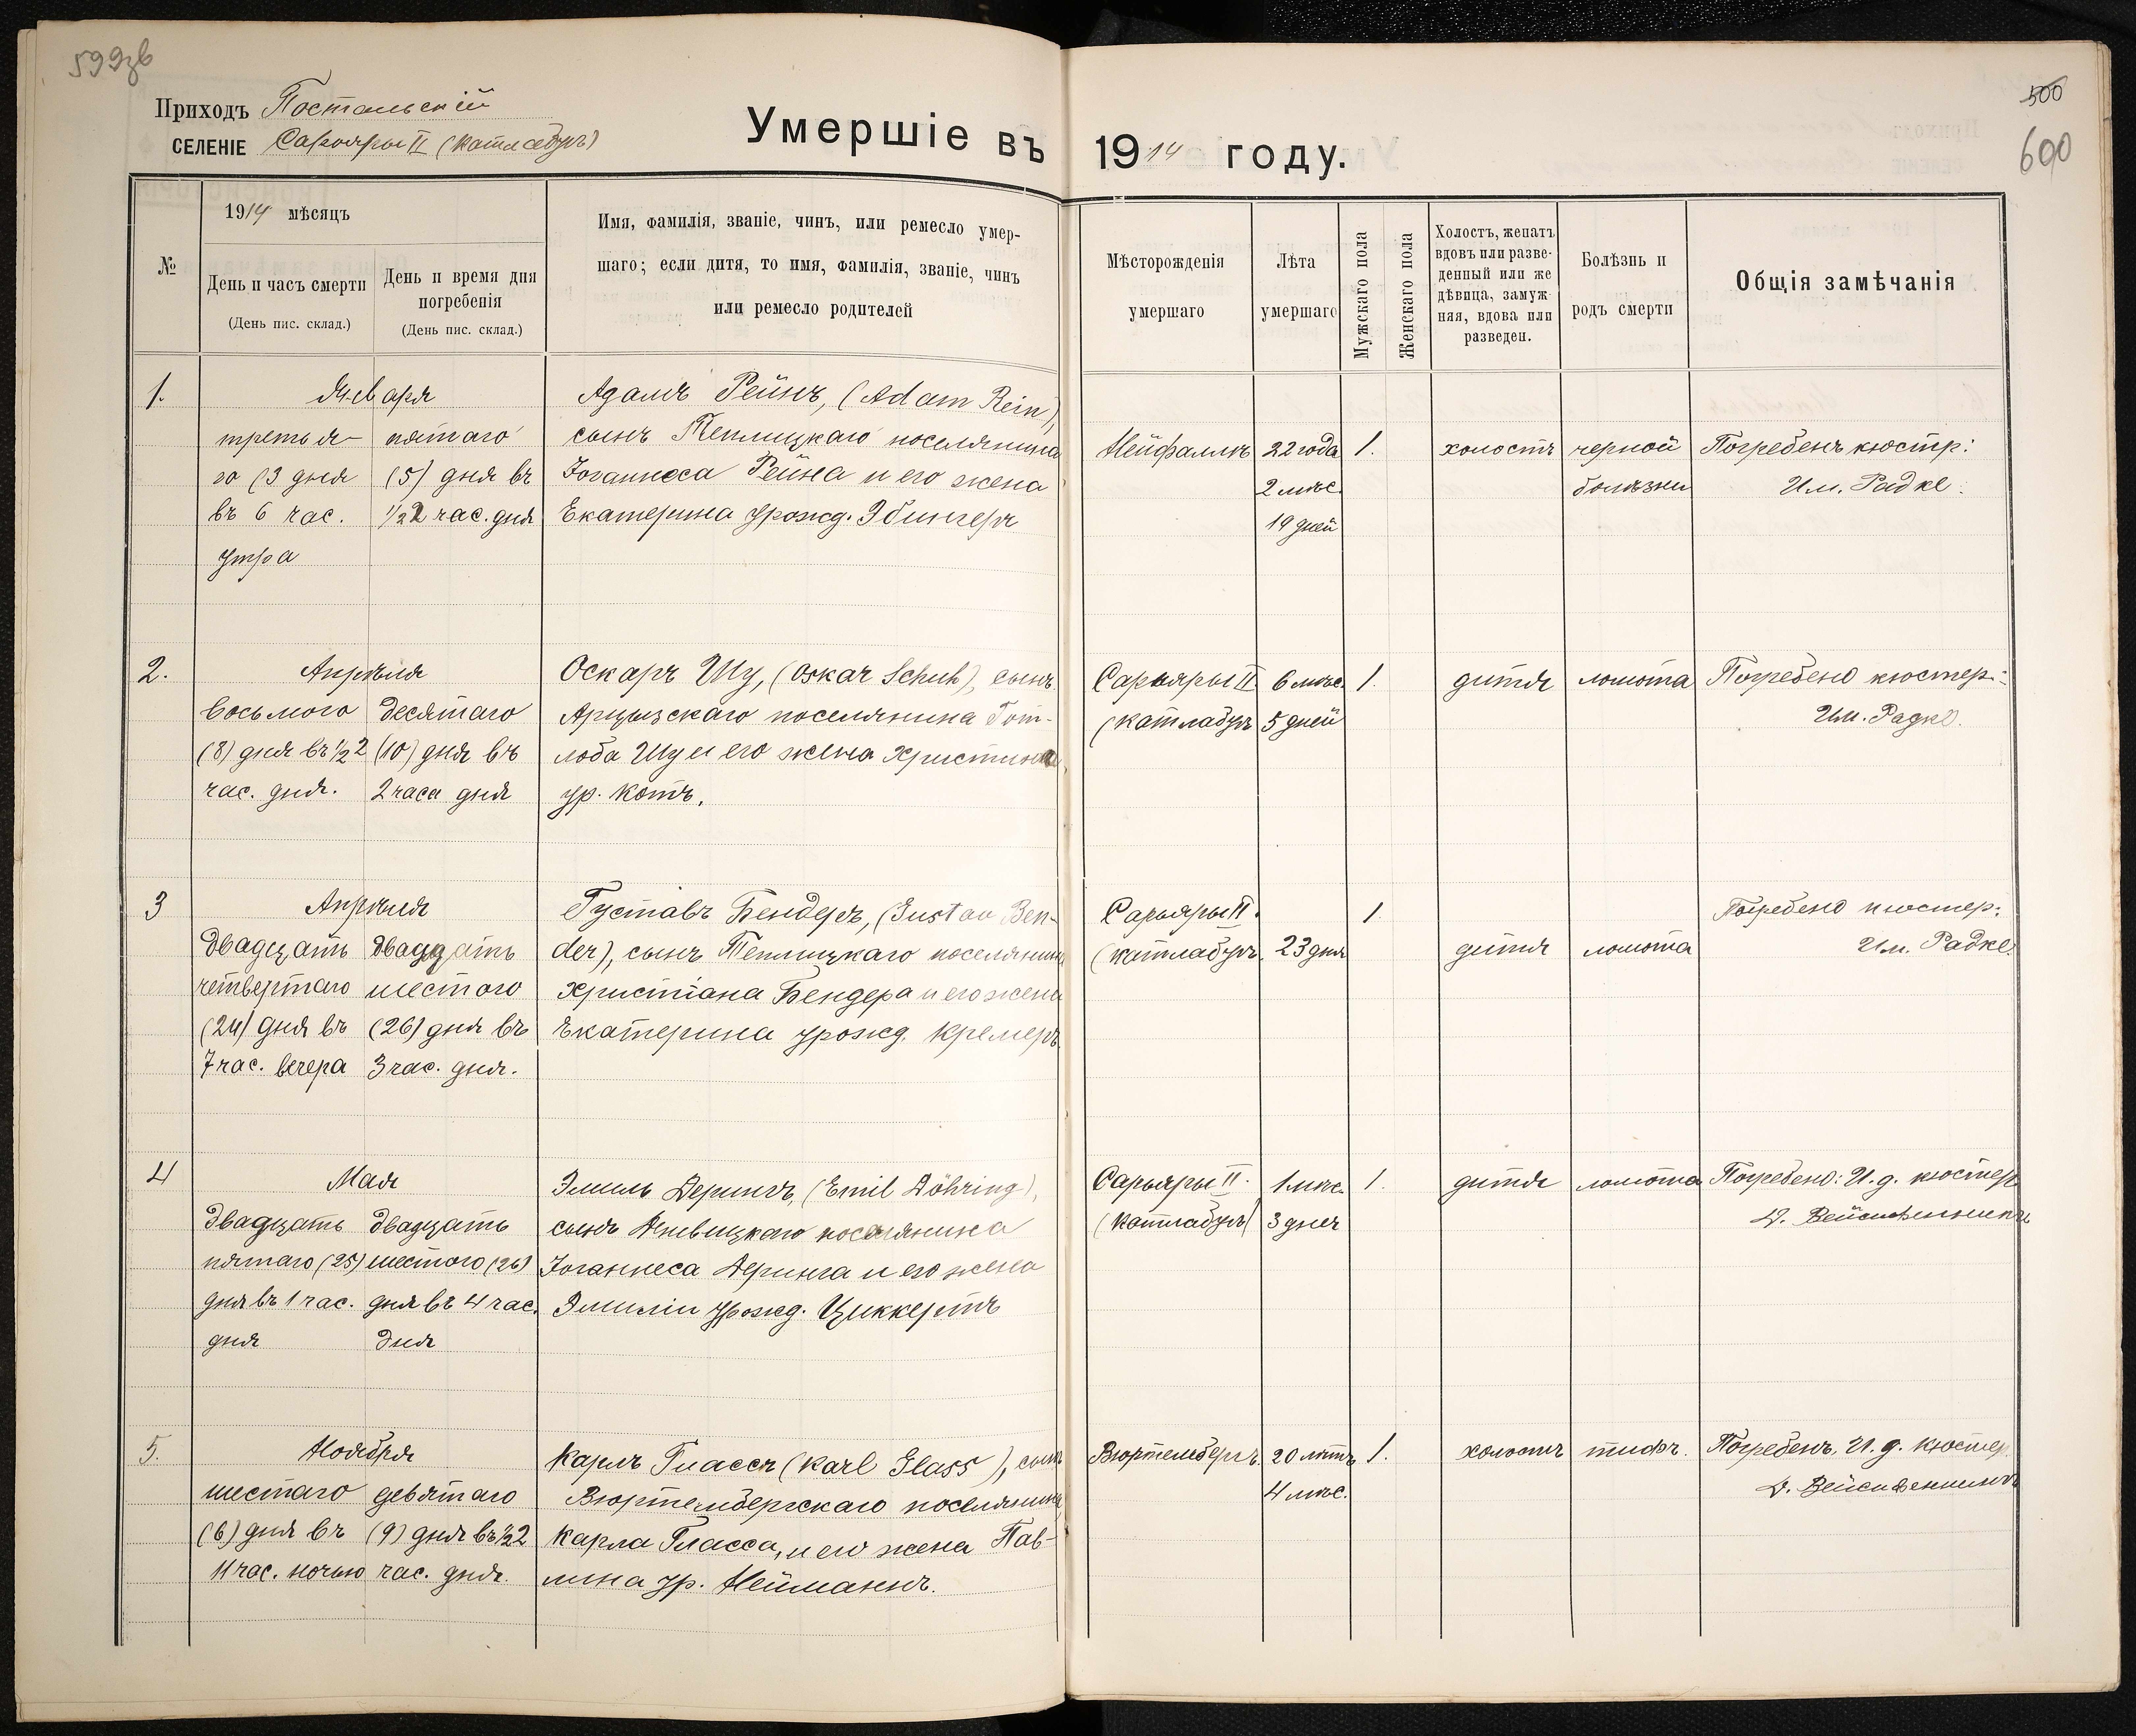 599зв
Приходъ Постальскій
СЕЛЕНІЕ Сарыяры II (Катлабухъ)
Умершіе въ 1914 году.
500
600
№
1914 мѣсяцъ
День и часъ смерти
(День пис. склад.)
День и время дня
погребенія
(День пис. склад.)
Имя, фамилія, званіе, чинъ, или ремесло умер-
шаго; если дитя, то имя, фамилія, званіе, чинъ
или ремесло родителей
Мѣсторожденія
умершаго
Лѣта
умершаго
Мужскаго пола
Женскаго пола
Холостъ, женатъ
вдовъ или разве-
денный или же
дѣвица, замуж-
няя, вдова или
разведен.
Болѣзнь и
родъ смерти
Общія замѣчанія
1.
Января
третья-
го (3 дня
въ 6 час.
утра
пятаго
(5) дня въ
1/2 2 час. дня
Адамъ Рейнъ, (Adam Rein),
сынъ Теплицкаго поселянина
Іоганнеса Рейна и его жена
Екатерина урожд. Эбингеръ
Нейфаллъ
22 года
2 мѣс.
19 дней
1.
холостъ
черной
болѣзни
Погребенъ кюстр:
Им. Радке.
2.
Апрѣля
восьмого
(8) дня въ 1/2 2
час. дня.
десятаго
(10) дня въ
2 часа дня
Оскаръ Шу, (Oskar Schuh), сынъ
Арцызскаго поселянина Гот-
лоба Шу и его жена Христина
ур. Котъ.
Сарыяры II
(Катлабухъ
6 мѣс.
5 дней
1.
дитя
ломота
Погребено кюстер:
Им. Радке.
3
Апрѣля
двадцать
четвертаго
(24) дня въ
7 час. вечера
двадцать
шестого
(26) дня въ
3 час. дня.
Густавъ Бендеръ, (Gustav Ben-
der), сынъ Теплицкаго поселянина
Христіана Бендера и его жена
Екатерина урожд. Кремеръ.
Сарыяры II.
(Катлабухъ.
23 дня
1
дитя
ломота
Погребено кюстер:
Им. Радке.
4
Мая
двадцать
пятаго (25)
дня въ 1 час.
дня
двадцать
шестого (26)
дня въ 4 час.
дня
Эмиль Дерингъ, (Emil Döhring),
сынъ поселянина
Іоганнеса Деринга и его жена
Эмиліи урожд. Циккертъ
Сарыяры II.
(Катлабухъ)
1 мѣс.
3 дней
1.
дитя
ломота
Погребено: И. д. кюстер
5.
Ноября
шестаго
(6) дня въ
11 час. ночью
девятаго
(9) дня въ 1/2 2
час. дня.
Карлъ Глассъ (Karl Glass), сынъ
Вюртембергскаго поселянина
Карла Гласса, и его жена Пав-
лина ур. Нейманнъ.
Вюртембергъ.
20 лѣтъ
4 мѣс.
1.
холостъ
тифъ.
Погребенъ. И. д. кюстер.